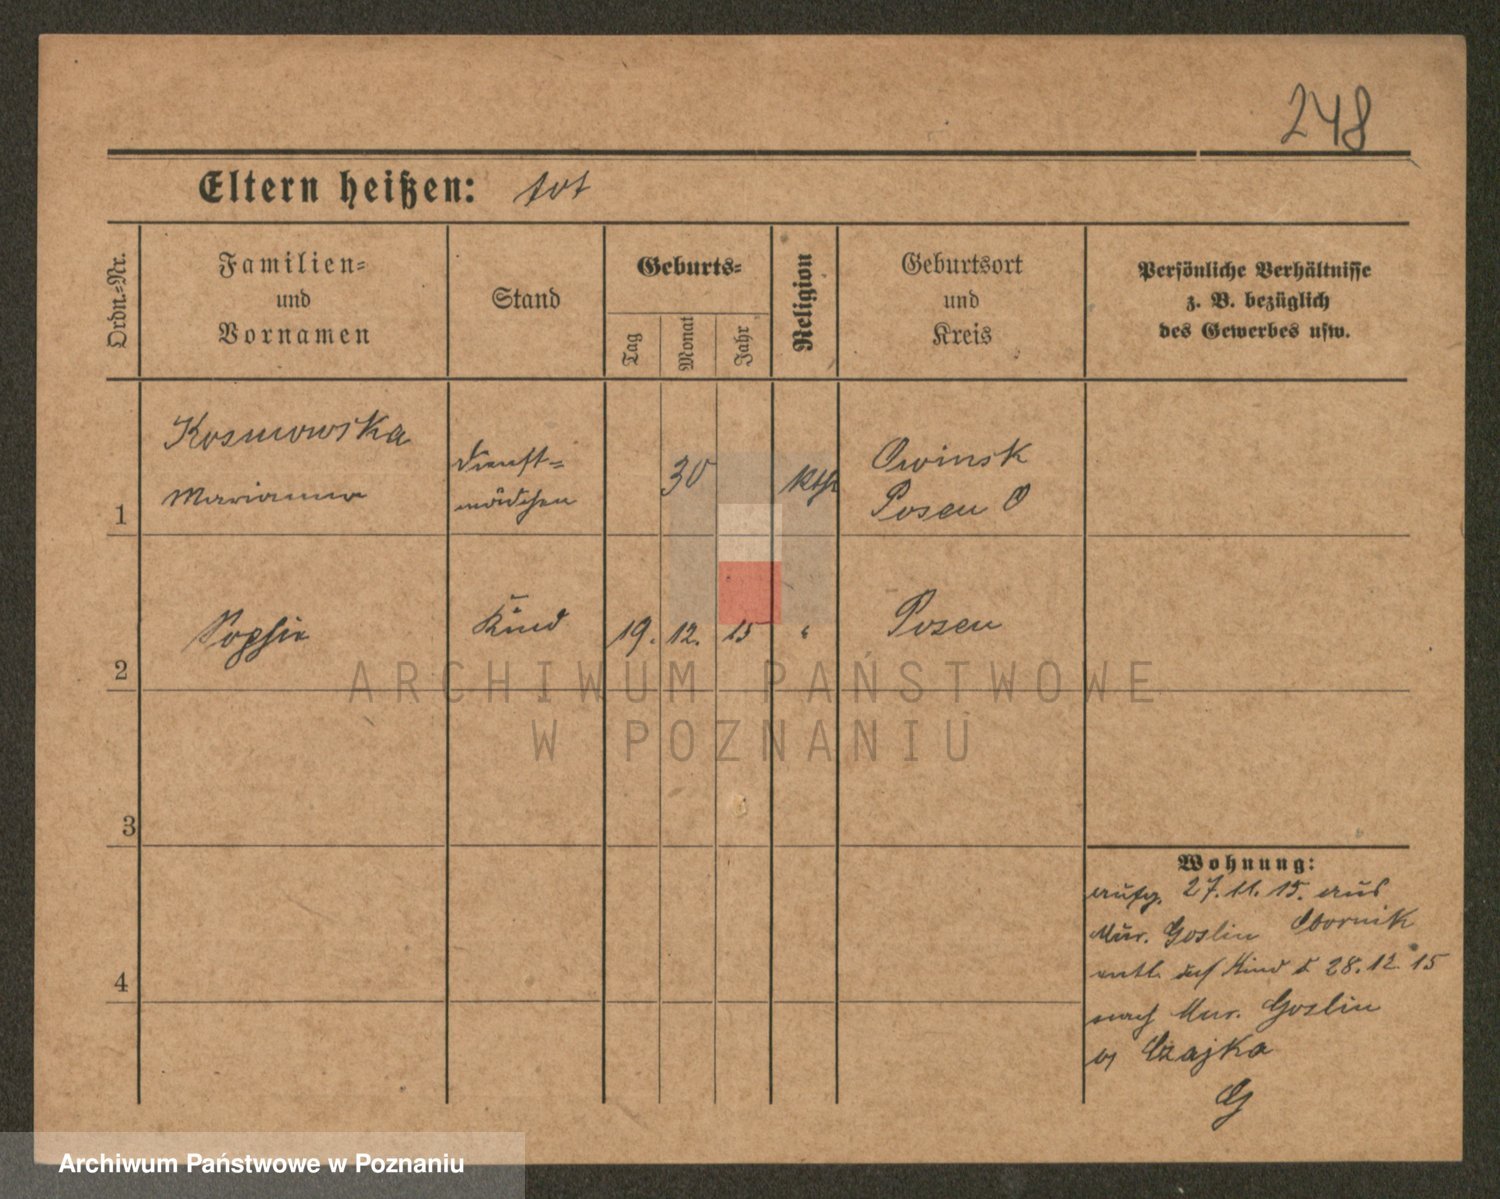 248
Eltern heißen: tot
Ordn.=Nr.
Familien=
und
Vornamen
Stand
Geburts=
Tag
Monat
Jahr
Religion
Geburtsort
und
Kreis
Persönliche Verhältnisse
z. B. bezüglich
des Gewerbes usw.
1
Kosmowska
Marianna
Dienst=
mädchen
30
kth
Owinsk
Posen O
2
Sophie
Kind
19. 12. 15
"
Posen
3
4
Wohnung:
aufg. 27.11.15. aus
Mur. Goslin Obornik
entl. Kind 28.12.15
nach Mur. Goslin
b/ Czajka
ARCHIWUM PAŃSTWOWE
W POZNANIU
Archiwum Państwowe w Poznaniu